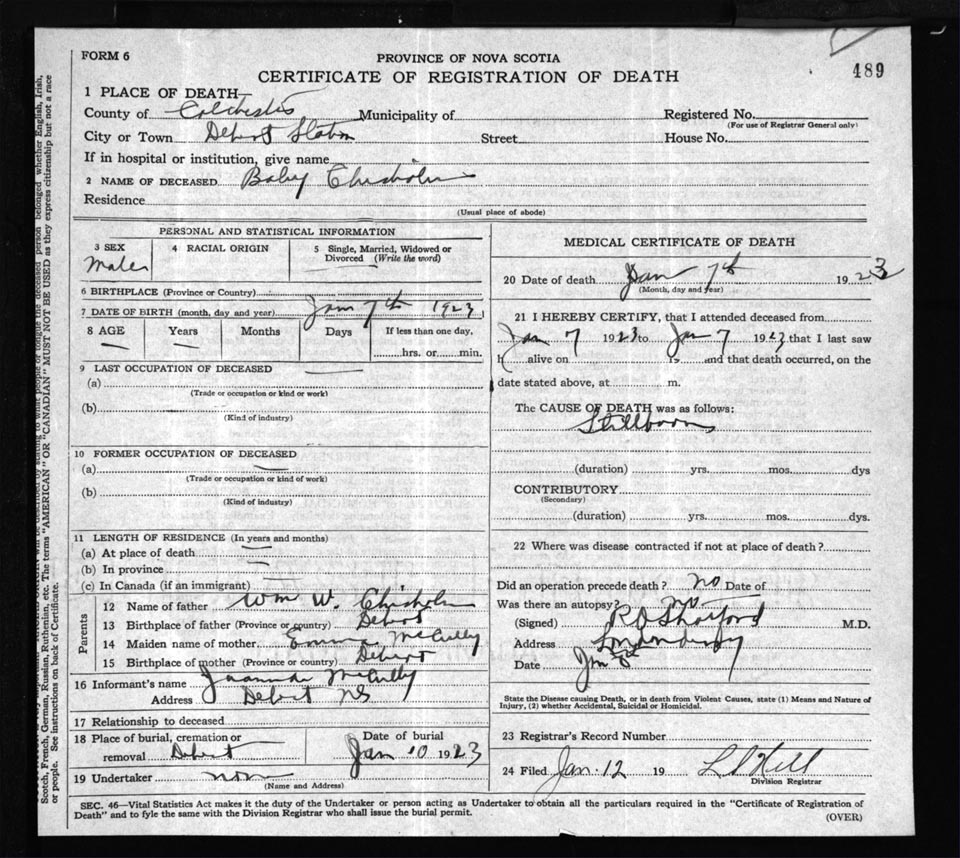 FORM 6
PROVINCE OF NOVA SCOTIA
CERTIFICATE OF REGISTRATION OF DEATH
489
1 PLACE OF DEATH—
County of Colchester Municipality of Registered No.
(For use of Registrar General only)
City or Town Debert Station Street House No.
If in hospital or institution, give name
2 NAME OF DECEASED Baby Chisholm
Residence
(Usual place of abode)
PERSONAL AND STATISTICAL INFORMATION
3 SEX 4 RACIAL ORIGIN 5 Single, Married, Widowed or
Divorced (Write the word)
Male
6 BIRTHPLACE (Province or Country)
7 DATE OF BIRTH (month, day and year) Jan 7th 1923
8 AGE Years Months Days If less than one day,
hrs. or min.
9 LAST OCCUPATION OF DECEASED
(a)
(Trade or occupation or kind or work)
(b)
(Kind of industry)
10 FORMER OCCUPATION OF DECEASED
(a)
(Trade or occupation or kind of work)
(b)
(Kind of industry)
11 LENGTH OF RESIDENCE (In years and months)
(a) At place of death
(b) In province
(c) In Canada (if an immigrant)
Parents
12 Name of father Wm W. Chisholm
13 Birthplace of father (Province or country) Debert
14 Maiden name of mother Emma McCully
15 Birthplace of mother (Province or country) Debert
16 Informant's name McCully
Address Debert NS
17 Relationship to deceased
18 Place of burial, cremation or removal Debert
Date of burial Jan 10 1923
19 Undertaker none
(Name and Address)
MEDICAL CERTIFICATE OF DEATH
20 Date of death Jan 7th 1923
(Month, day and year)
21 I HEREBY CERTIFY, that I attended deceased from
Jan 7 1923 to Jan 7 1923 that I last saw
h alive on 19 and that death occurred, on the
date stated above, at m.
The CAUSE OF DEATH was as follows:
Stillborn
(duration) yrs. mos. dys
CONTRIBUTORY
(Secondary)
(duration) yrs. mos. dys.
22 Where was disease contracted if not at place of death?
Did an operation precede death? no Date of
Was there an autopsy? no
(Signed) M.D.
Address Londonderry
Date Jan 8th
State the Disease causing Death, or in death from Violent Causes, state (1) Means and Nature of
Injury, (2) whether Accidental, Suicidal or Homicidal.
23 Registrar's Record Number
24 Filed Jan. 12 19 Hill
Division Registrar
SEC. 46—Vital Statistics Act makes it the duty of the Undertaker or person acting as Undertaker to obtain all the particulars required in the "Certificate of Registration of
Death" and to fyle the same with the Division Registrar who shall issue the burial permit.
(OVER)
people or tongue the deceased person belonged whether English, Irish,
Scotch, French, German, Russian, Ruthenian, etc. The terms "AMERICAN" OR "CANADIAN" MUST NOT BE USED as they express citizenship but not a race
or people. See instructions on back of Certificate.